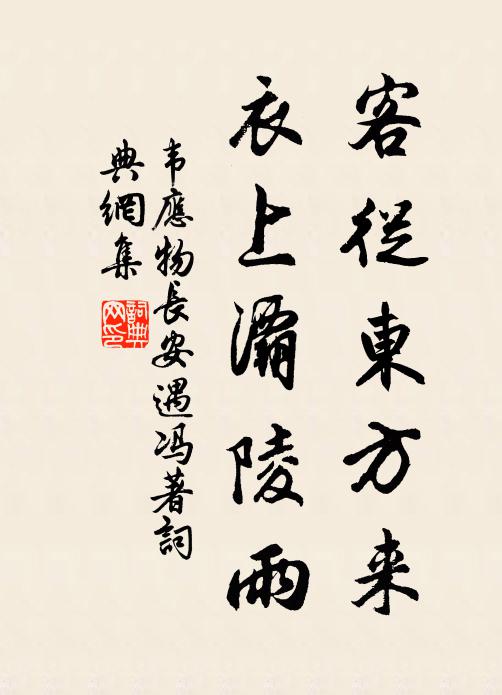 客從東方来
衣上灞陵雨
韦應物長安遇冯著詞
典網集
詞典
网印